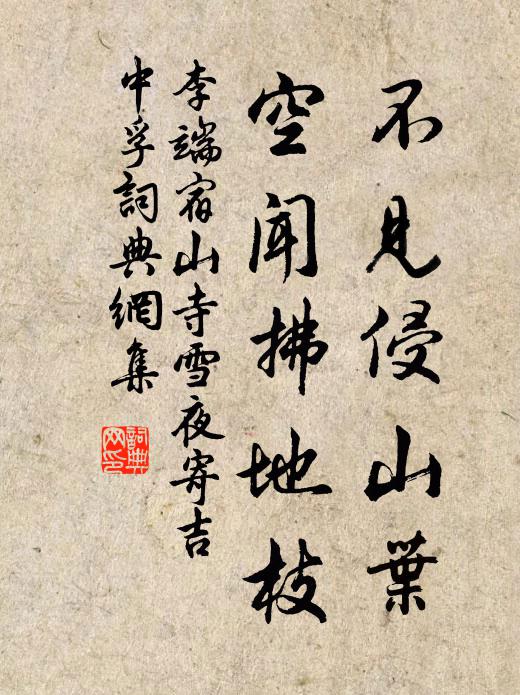 不見侵山葉
空聞拂地枝
李端宿山寺雪夜寄吉
中孚詞典網集
詞典网印